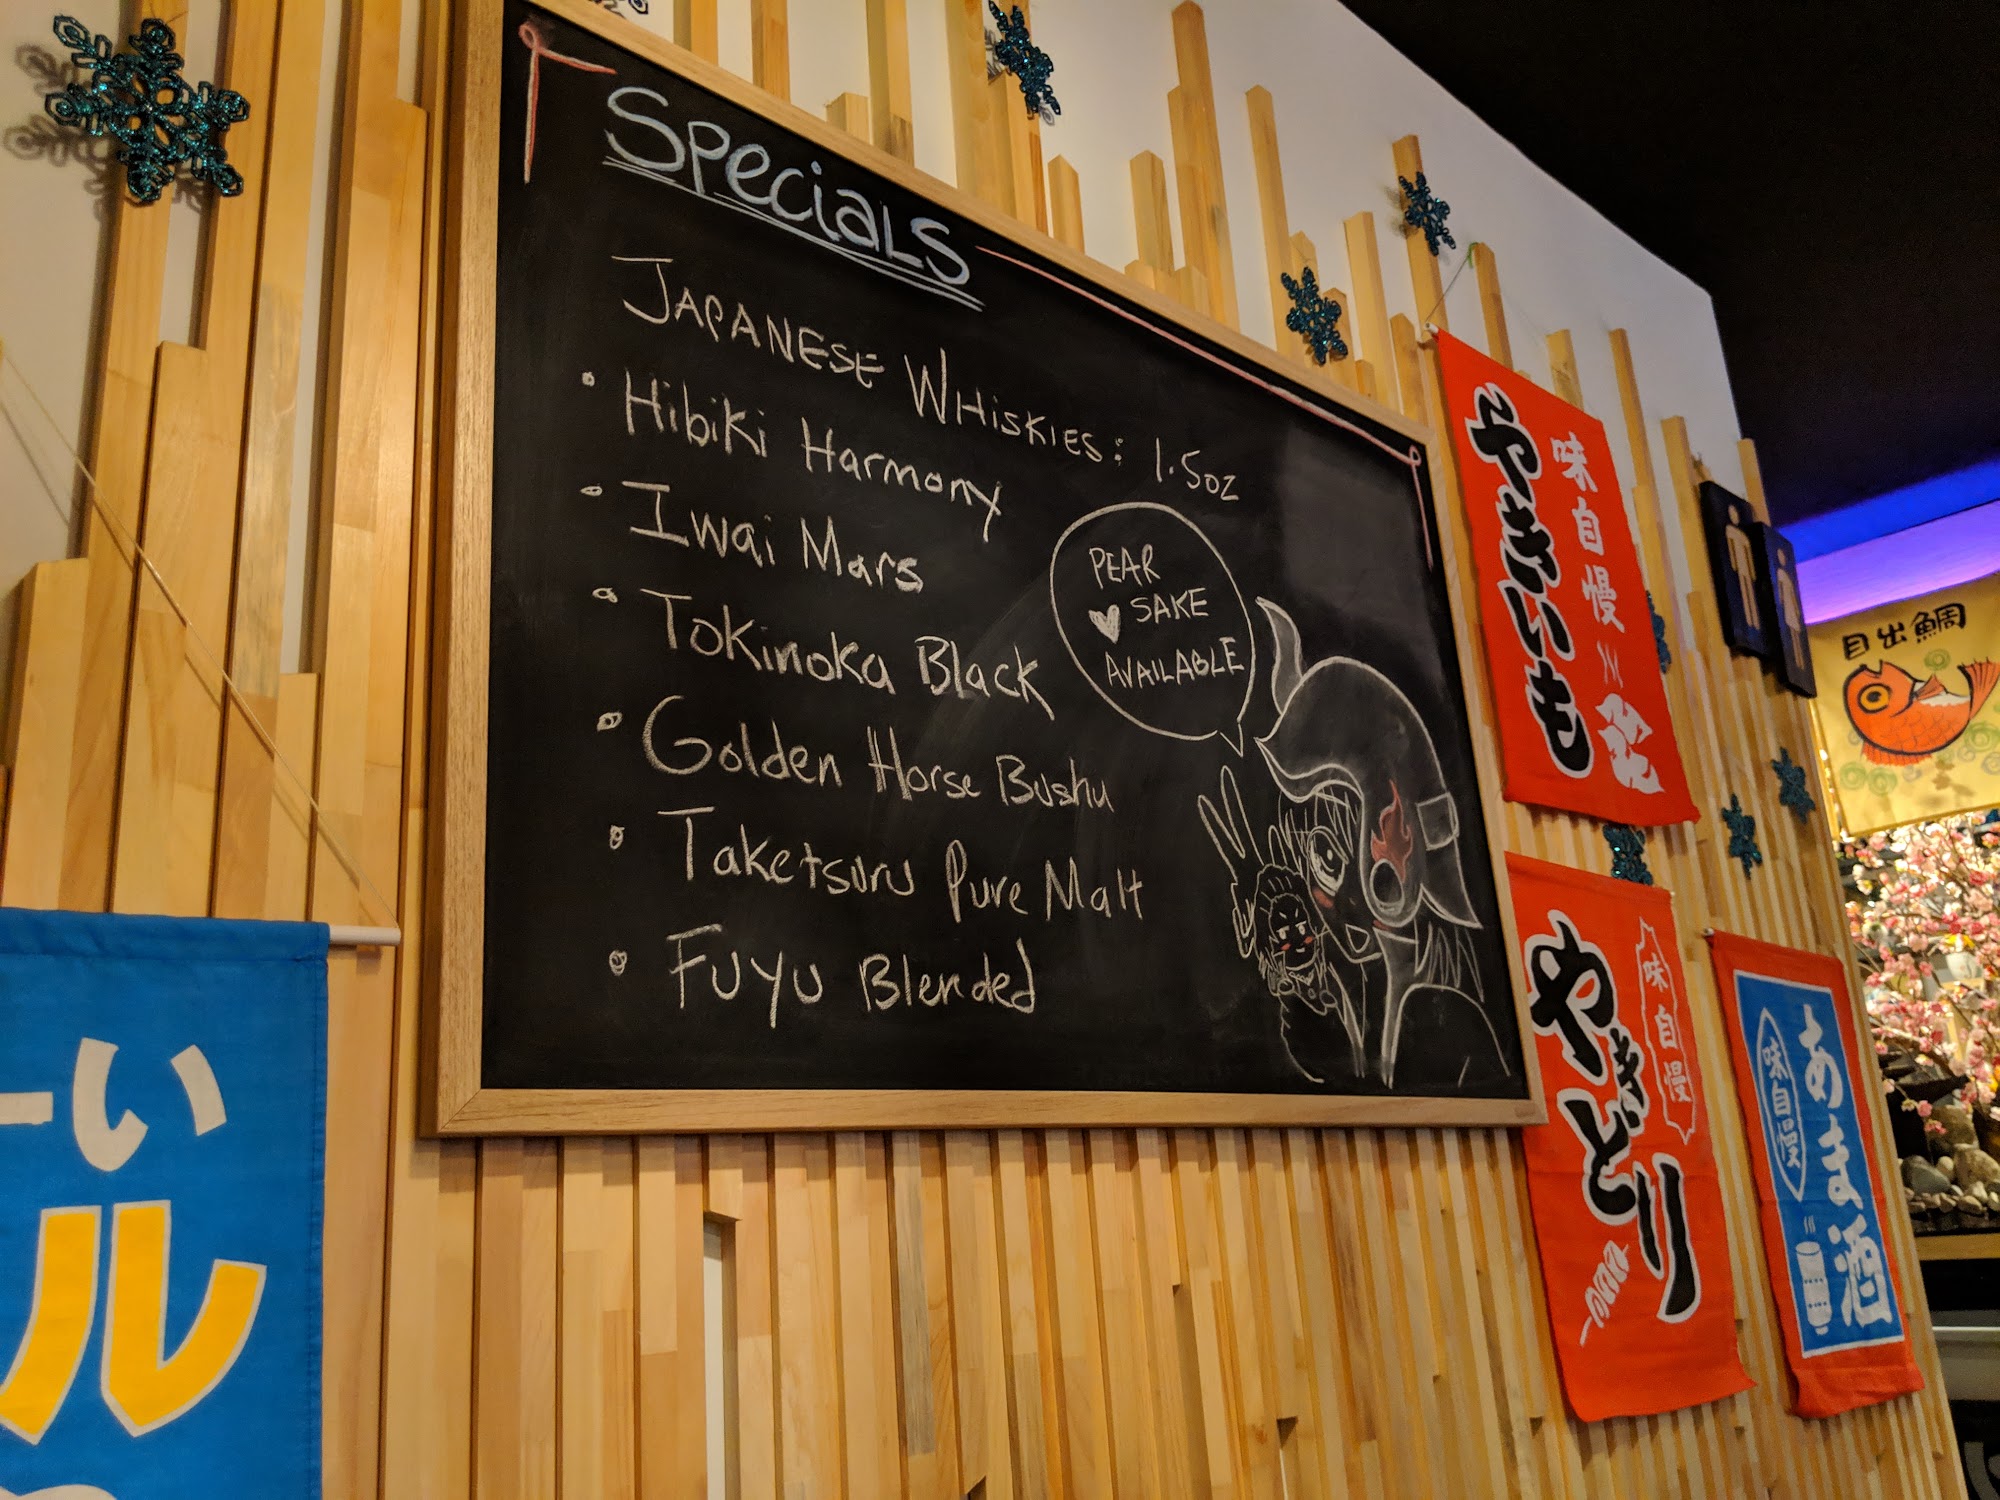 Specials
Japanese Whiskies: 1.5oz
• Hibiki Harmony
• Iwai Mars
• Tokinoka Black
• Golden Horse Bushu
• Taketsuru Pure Malt
• Fuyu Blended
PEAR
♥ SAKE
AVAILABLE
やきいも
味自慢
やきとり
味自慢
あま酒
味自慢
目出鯛
ーい
ル